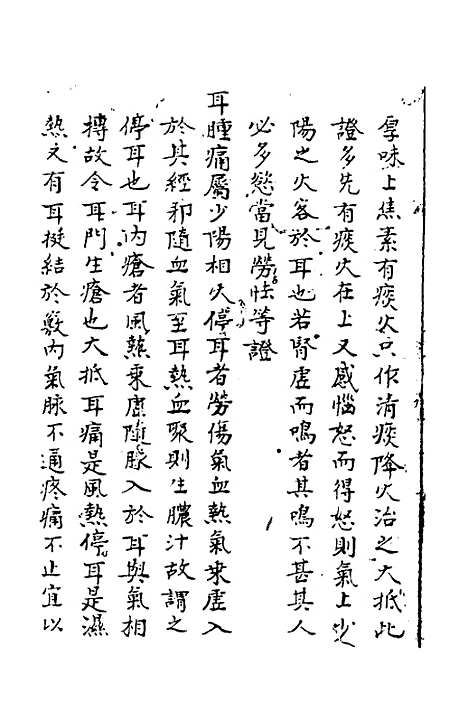 厚味上焦素有痰火只作清痰降火治之大抵此
證多先有痰火在上又感惱怒而得怒則氣上少
陽之火客於耳也若腎虛而鳴者其鳴不甚其人
必多慾當見勞怯等證
耳腫痛屬少陽相火停耳者勞傷氣血熱氣乘虛入
於其經邪隨血氣至耳熱血聚則生膿汁故謂之
停耳也耳內瘡者風熱乘虛隨脈入於耳與氣相
摶故令耳門生瘡也大抵耳痛是風熱停耳是濕
熱又有耳挺結於竅內氣脉不通疼痛不止宜以